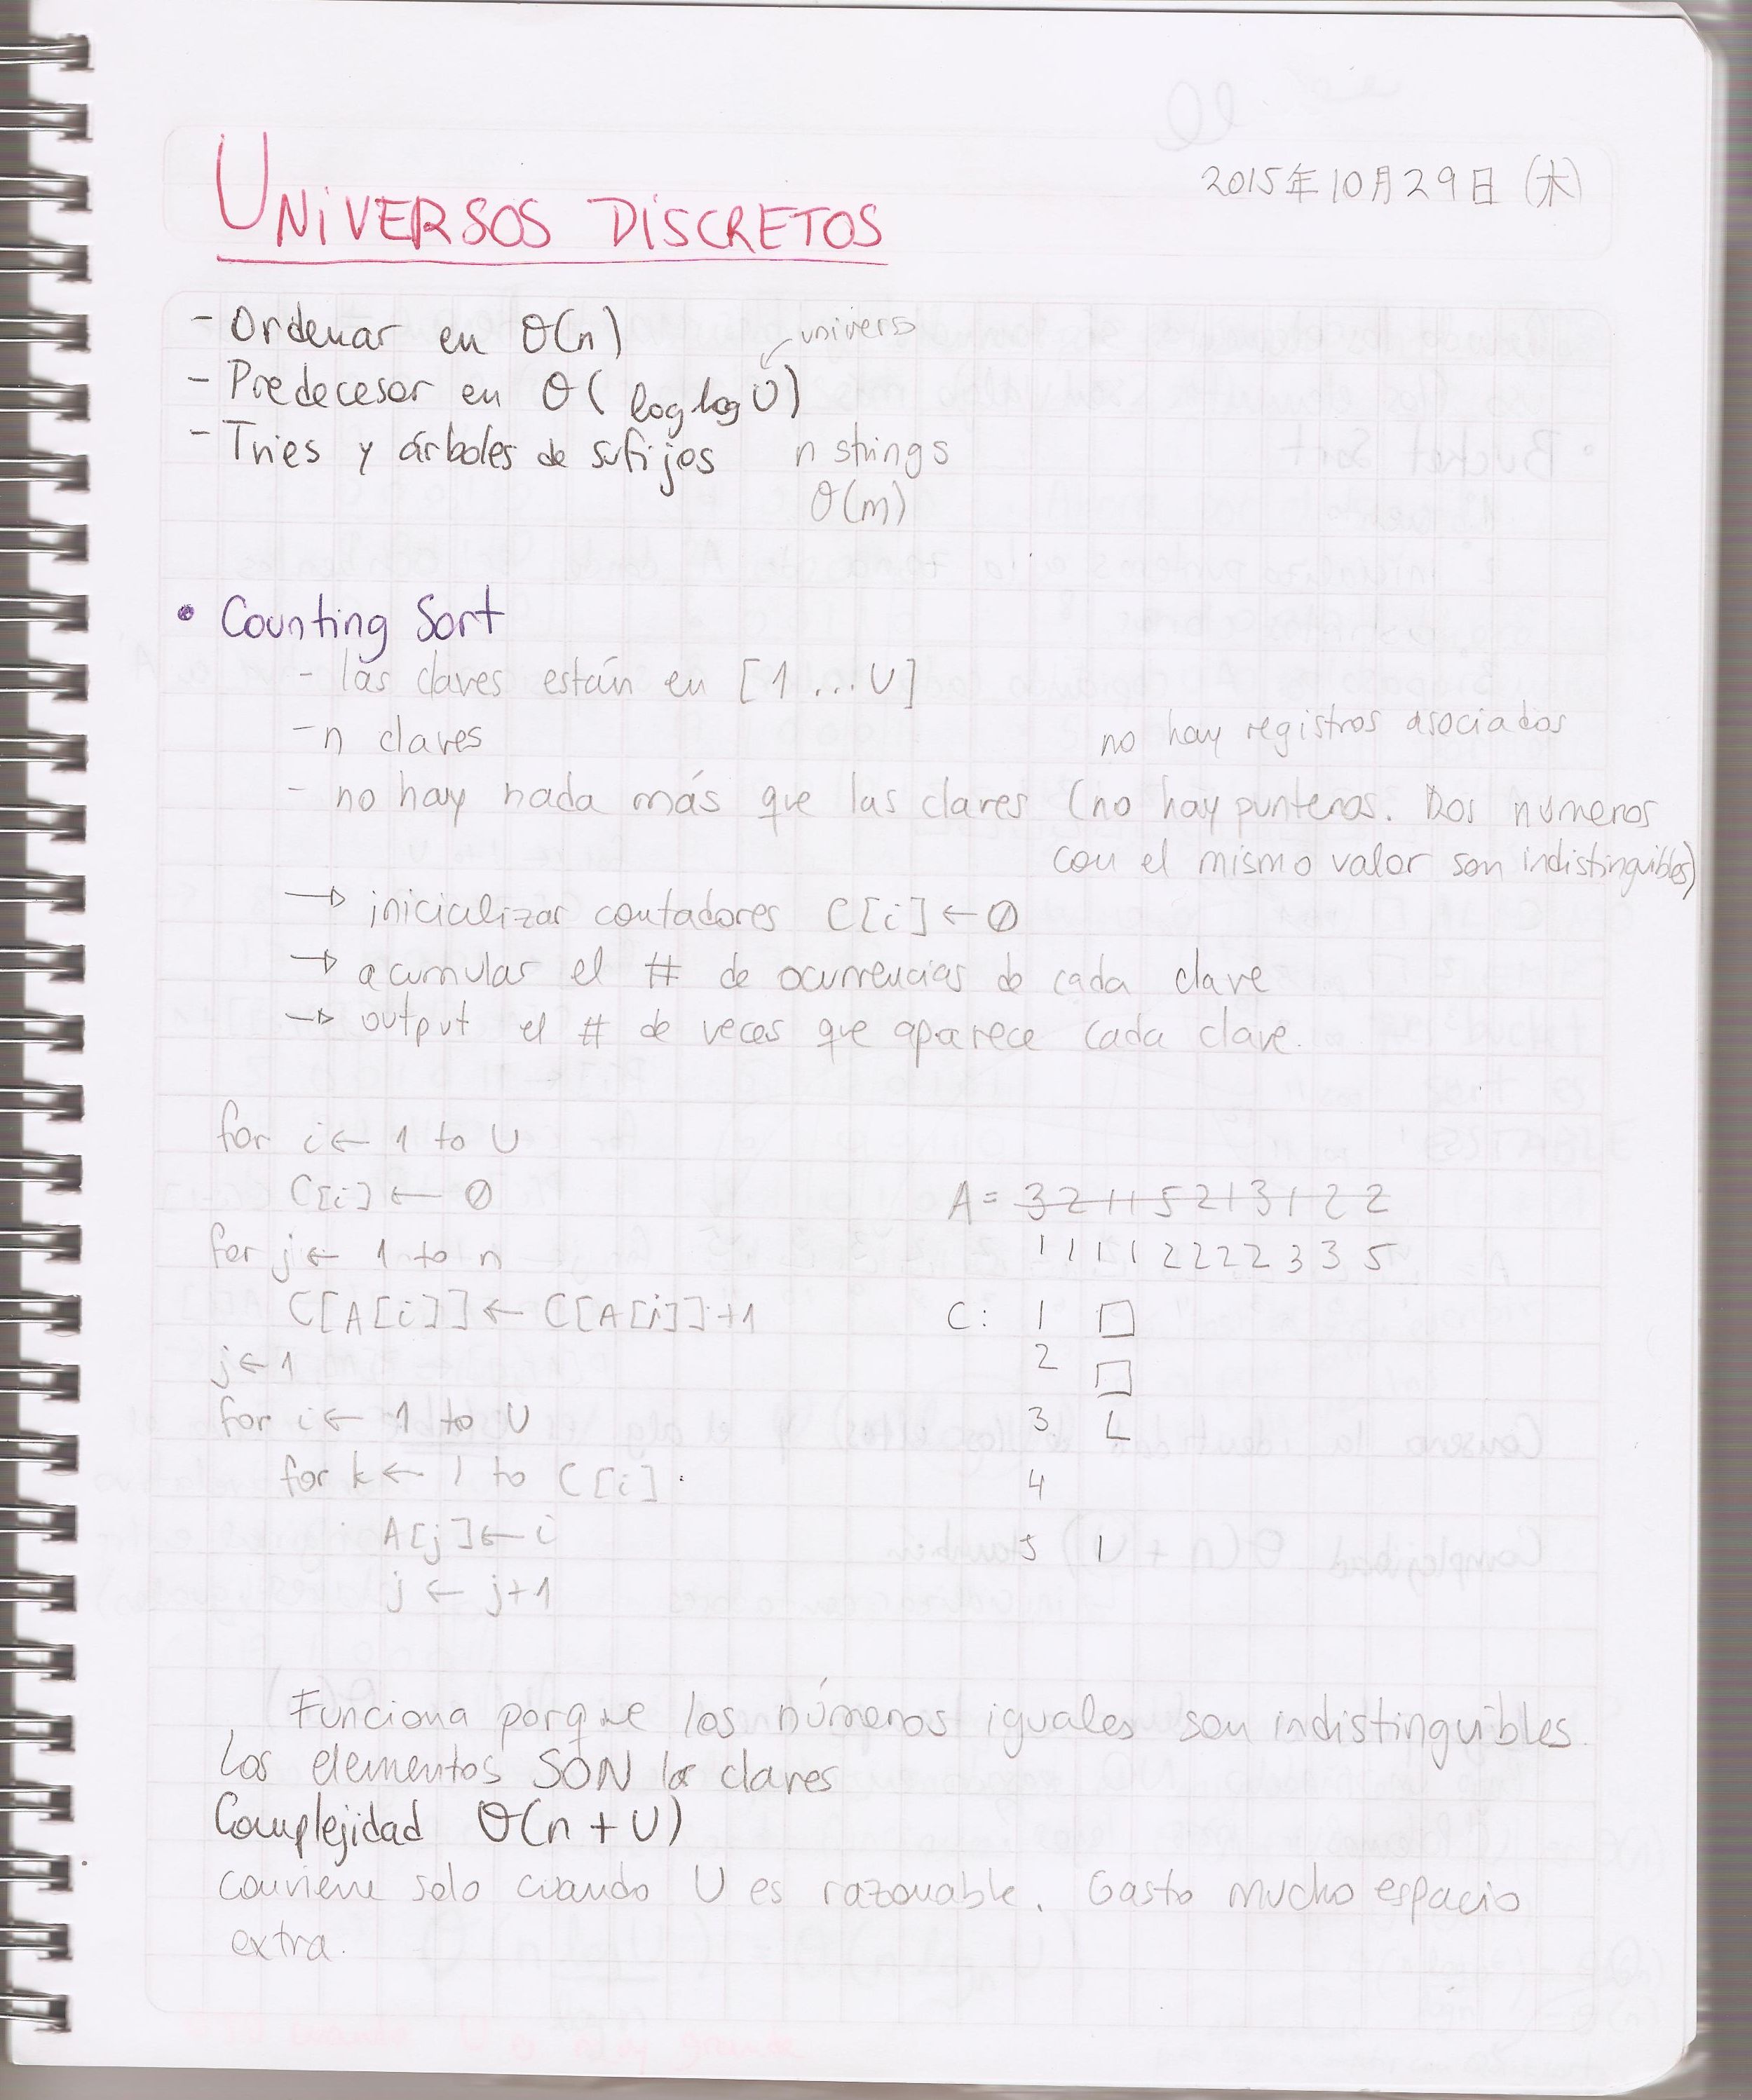 2015年10月29日 (木)
UNIVERSOS DISCRETOS
- Ordenar en θ(n)
univers
- Predecesor en θ(loglog U)
- Tries y árboles de sufijos n strings
θ(m)
• Counting Sort
- las claves están en [1...U]
- n claves no hay registros asociados
- no hay nada más que las claves (no hay punteros. Dos numeros
con el mismo valor son indistinguibles)
→ inicializar contadores C[i] ← 0
→ acumular el # de ocurrencias de cada clave
→ output el # de veces que aparece cada clave.
for i ← 1 to U
C[i] ← 0 A = 3 2 1 1 5 2 1 3 1 2 2
for j ← 1 to n 1 1 1 1 2 2 2 2 3 3 5
C[A[i]] ← C[A[i]]+1 C: 1
j ← 1 2
for i ← 1 to U 3
for k ← 1 to C[i] 4
A[j] ← i 5 1
j ← j+1
Funciona porque los números iguales son indistinguibles.
Los elementos SON las claves
Complejidad θ(n + U)
conviene solo cuando U es razonable. Gasto mucho espacio
extra.